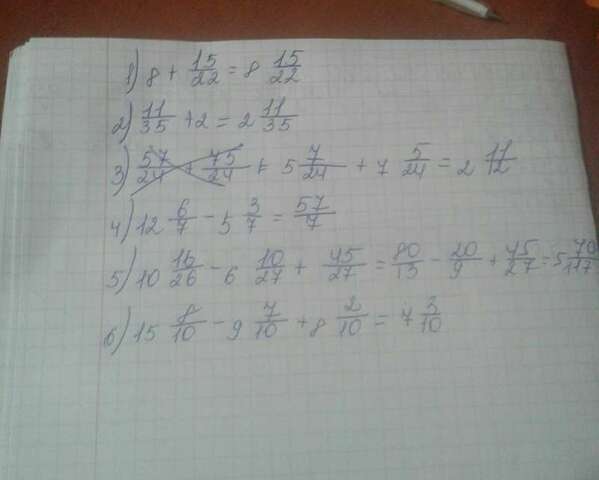 1) 8 + 15/22 = 8 15/22
2) 11/35 + 2 = 2 11/35
3) 57/24 + 75/24 + 5 7/24 + 7 5/24 = 2 11/12
4) 12 6/7 - 5 3/7 = 57/7
5) 10 16/26 - 6 10/27 + 45/27 = 80/13 - 20/9 + 45/27 = 5 70/117
6) 15 8/10 - 9 7/10 + 8 2/10 = 7 3/10